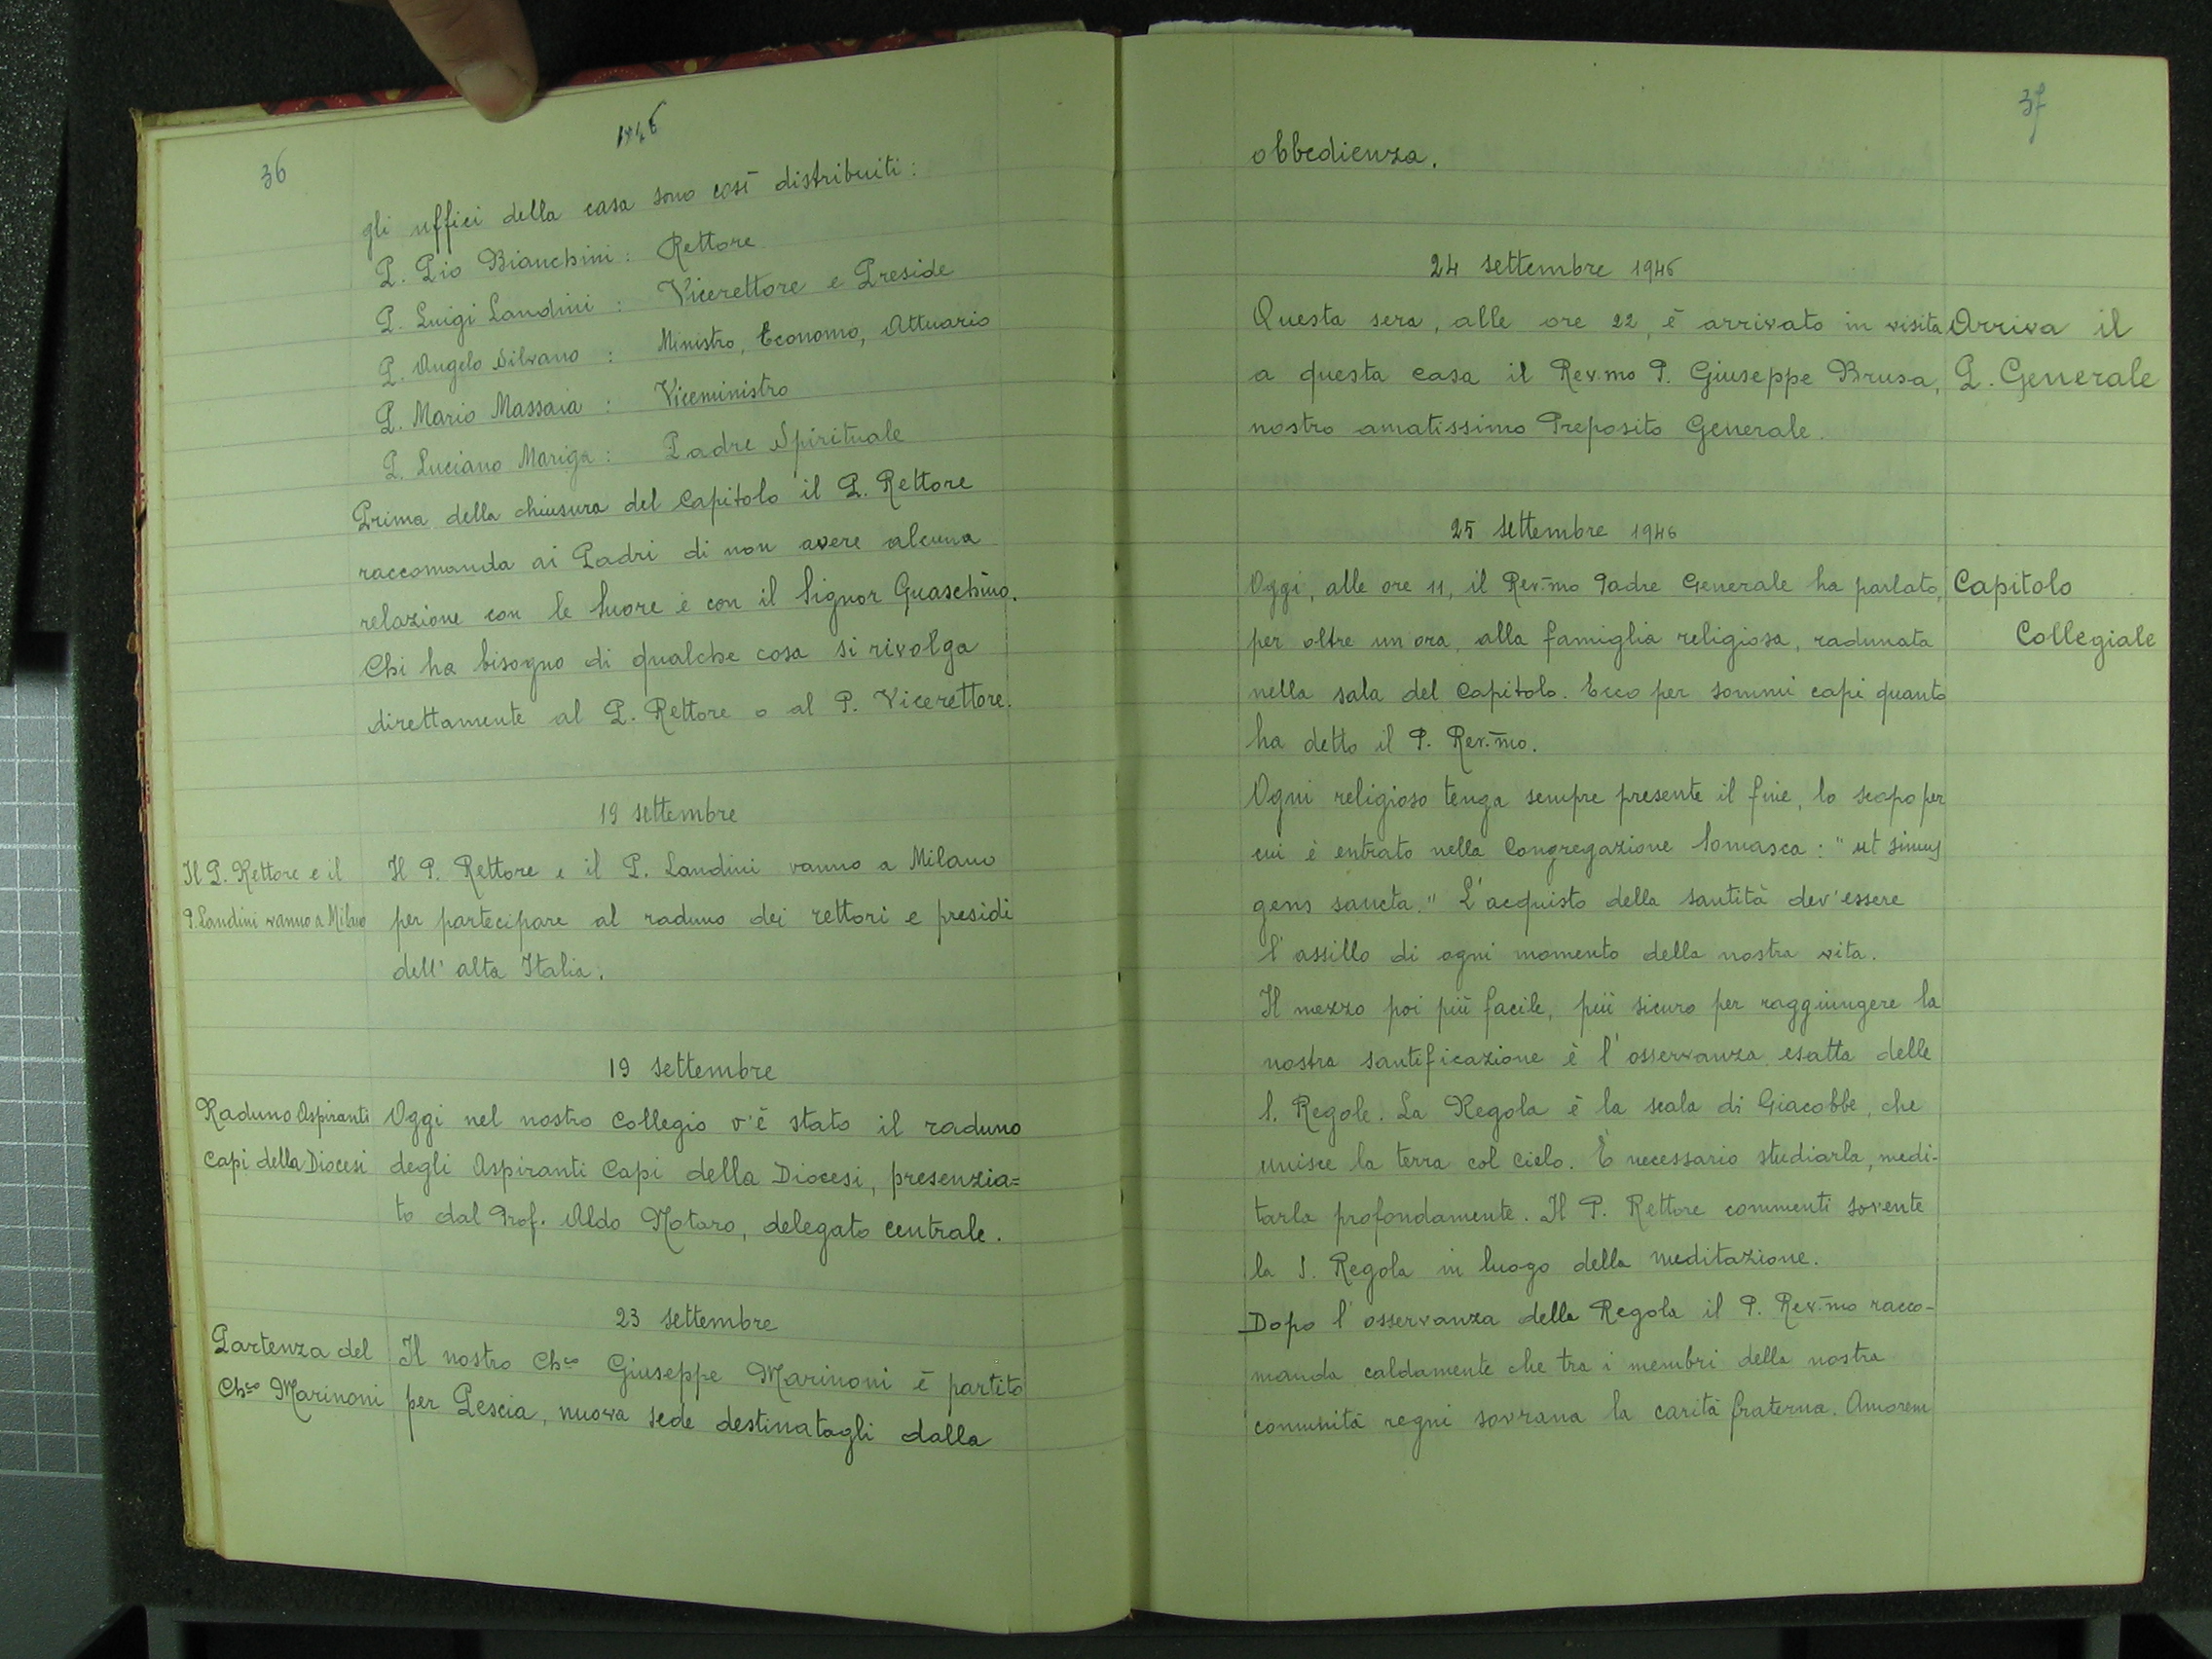 36
1946
gli uffici della casa sono così distribuiti:
P. Pio Bianchini: Rettore
P. Luigi Landini: Vicerettore e Preside
P. Angelo Silvano: Ministro, Economo, Attuario
P. Mario Massaia: Viceministro
P. Luciano Mariga: Padre Spirituale
Prima della chiusura del Capitolo il P. Rettore
raccomanda ai Padri di non avere alcuna
relazione con le Suore e con il Signor Guaschino.
Chi ha bisogno di qualche cosa si rivolga
direttamente al P. Rettore o al P. Vicerettore.
19 settembre
Il P. Rettore e il
P. Landini vanno a Milano
Il P. Rettore e il P. Landini vanno a Milano
per partecipare al raduno dei rettori e presidi
dell'alta Italia.
19 settembre
Raduno Aspiranti
Capi della Diocesi
Oggi nel nostro Collegio v'è stato il raduno
degli Aspiranti Capi della Diocesi, presenzia=
to dal Prof. Aldo Notaro, delegato centrale.
23 settembre
Partenza del
Ch.co Marinoni
Il nostro Ch.co Giuseppe Marinoni è partito
per Pescia, nuova sede destinatagli dalla
37
obbedienza.
24 settembre 1946
Questa sera, alle ore 22, è arrivato in visita
a questa casa il Rev.mo P. Giuseppe Brusa,
nostro amatissimo Preposito Generale.
Arriva il
P. Generale
25 settembre 1946
Oggi, alle ore 11, il Rev.mo Padre Generale ha parlato,
per oltre un ora, alla famiglia religiosa, radunata
nella sala del Capitolo. Ecco per sommi capi quanto
ha detto il P. Rev.mo.
Capitolo
Collegiale
Ogni religioso tenga sempre presente il fine, lo scopo per
cui è entrato nella Congregazione Somasca: "ut simus
gens sancta." L'acquisto della santità dev'essere
l'assillo di ogni momento della nostra vita.
Il mezzo poi più facile, più sicuro per raggiungere la
nostra santificazione è l'osservanza esatta delle
S. Regole. La Regola è la scala di Giacobbe, che
unisce la terra col cielo. È necessario studiarla, medi-
tarla profondamente. Il P. Rettore commenti sovente
la S. Regola in luogo della meditazione.
Dopo l'osservanza della Regola il P. Rev.mo racco-
manda caldamente che tra i membri della nostra
comunità regni sovrana la carità fraterna. Amorem